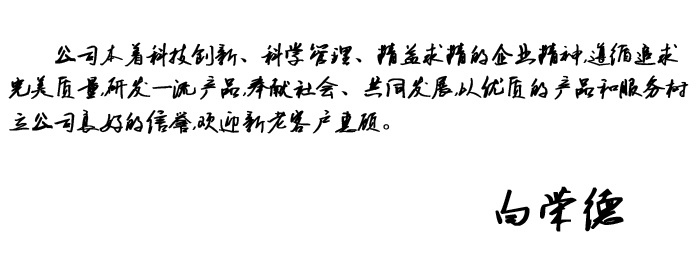 公司本着科技创新、科学管理、精益求精的企业精神,遵循追求
完美质量,研发一流产品,奉献社会、共同发展,以优质的产品和服务树
立公司良好的信誉,欢迎新老客户惠顾。
向荣德